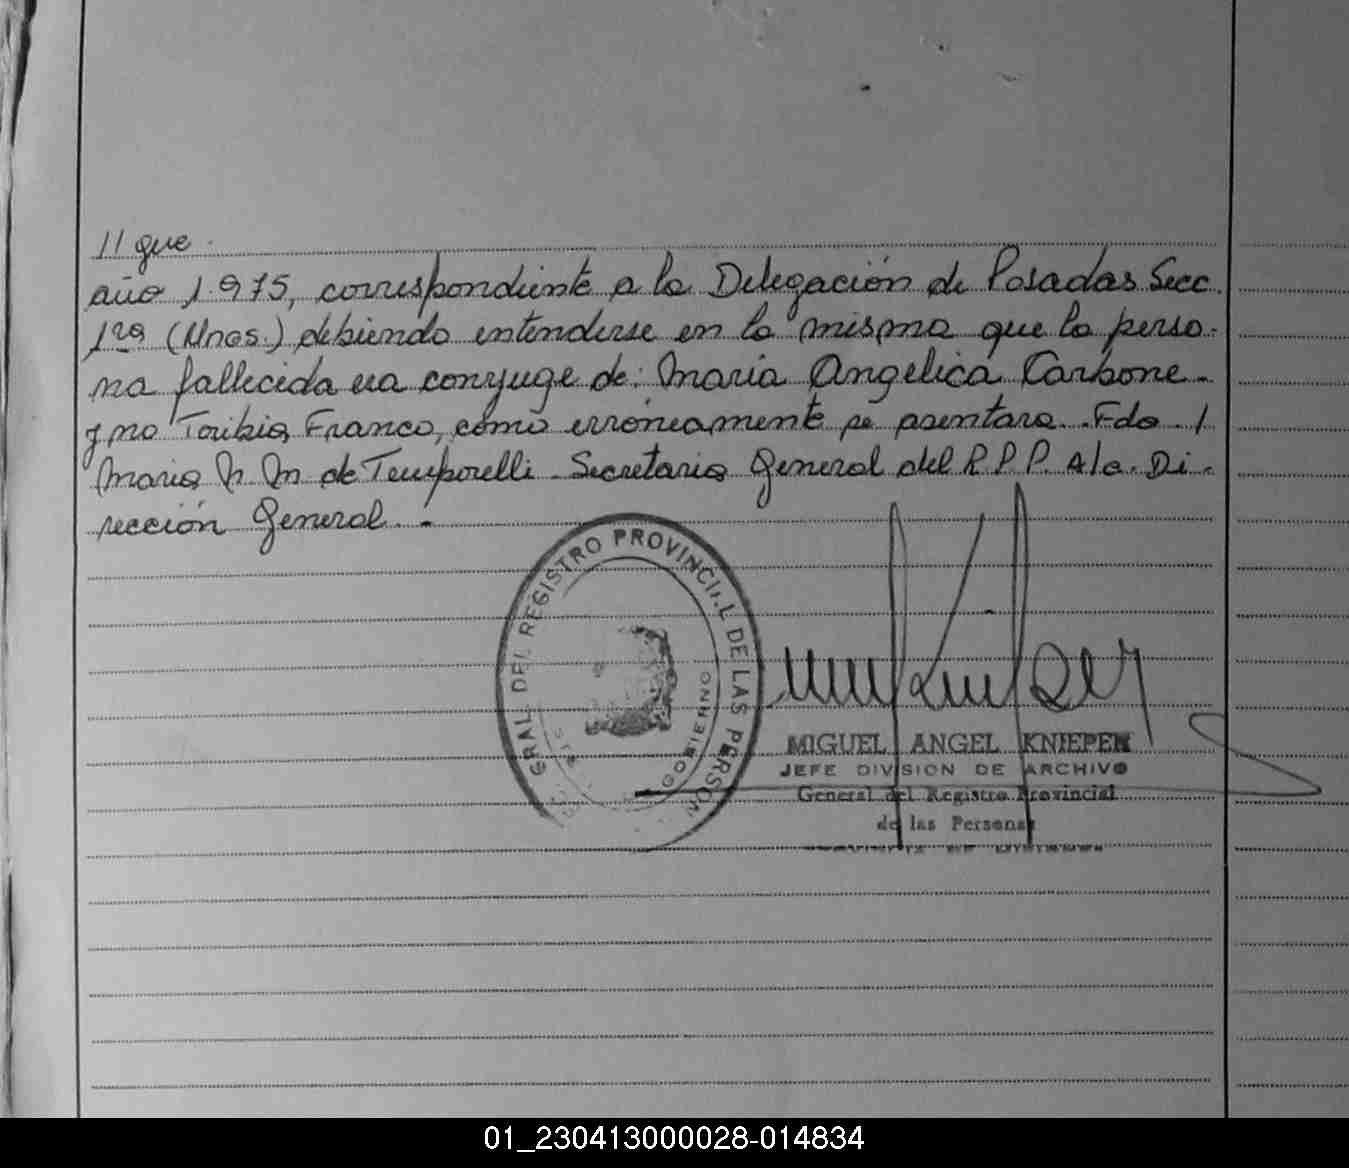 //que.
año 1.975, correspondiente a la Delegación de Posadas Secc.
1ra (Mnes.) debiendo entenderse en la misma que la perso-
na fallecida era conyuge de: Maria Angelica Carbone.-
y no Toribia Franco, como erróneamente se asentara.-Fdo. /
Maria M. M. de Temporelli. Secretaria General del R.P.P. A/c. Di-
rección General.-
GRAL. DEL REGISTRO PROVINCI.L DE LAS PERSON
GOBIERNO
MIGUEL ANGEL KNIEPER
JEFE DIVISION DE ARCHIVO
General del Registro Provincial
de las Personas
01_230413000028-014834